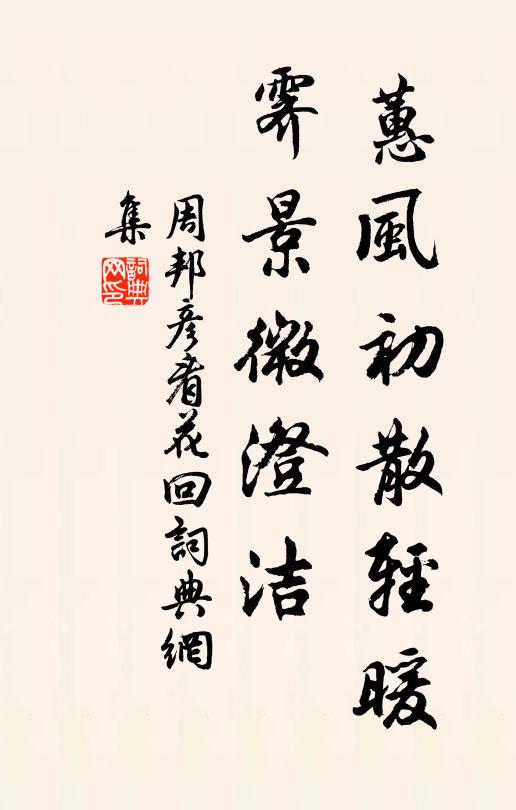 蕙風初散輕暖
霽景微澄洁
周邦彦看花回詞典網
集
詞典
网印